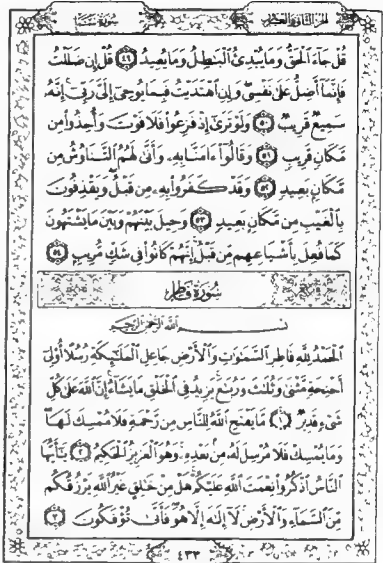 الجزء الثاني والعشرون سورة سبإ
قُلْ جَآءَ ٱلْحَقُّ وَمَا يُبْدِئُ ٱلْبَٰطِلُ وَمَا يُعِيدُ ٤٩ قُلْ إِن ضَلَلْتُ
فَإِنَّمَآ أَضِلُّ عَلَىٰ نَفْسِى وَإِنِ ٱهْتَدَيْتُ فَبِمَا يُوحِىٓ إِلَىَّ رَبِّىٓ إِنَّهُۥ
سَمِيعٌ قَرِيبٌ ٥٠ وَلَوْ تَرَىٰٓ إِذْ فَزِعُوا۟ فَلَا فَوْتَ وَأُخِذُوا۟ مِن
مَّكَانٍ قَرِيبٍ ٥١ وَقَالُوٓا۟ ءَامَنَّا بِهِۦ وَأَنَّىٰ لَهُمُ ٱلتَّنَاوُشُ مِن
مَّكَانٍۭ بَعِيدٍ ٥٢ وَقَدْ كَفَرُوا۟ بِهِۦ مِن قَبْلُ وَيَقْذِفُونَ
بِٱلْغَيْبِ مِن مَّكَانٍۭ بَعِيدٍ ٥٣ وَحِيلَ بَيْنَهُمْ وَبَيْنَ مَا يَشْتَهُونَ
كَمَا فُعِلَ بِأَشْيَاعِهِم مِّن قَبْلُ إِنَّهُمْ كَانُوا۟ فِى شَكٍّ مُّرِيبٍۭ ٥٤
سُورَةُ فَاطِرٍ
بِسْمِ ٱللَّهِ ٱلرَّحْمَٰنِ ٱلرَّحِيمِ
ٱلْحَمْدُ لِلَّهِ فَاطِرِ ٱلسَّمَٰوَٰتِ وَٱلْأَرْضِ جَاعِلِ ٱلْمَلَٰٓئِكَةِ رُسُلًا أُو۟لِىٓ
أَجْنِحَةٍ مَّثْنَىٰ وَثُلَٰثَ وَرُبَٰعَ يَزِيدُ فِى ٱلْخَلْقِ مَا يَشَآءُ إِنَّ ٱللَّهَ عَلَىٰ كُلِّ
شَىْءٍ قَدِيرٌ ١ مَّا يَفْتَحِ ٱللَّهُ لِلنَّاسِ مِن رَّحْمَةٍ فَلَا مُمْسِكَ لَهَا
وَمَا يُمْسِكْ فَلَا مُرْسِلَ لَهُۥ مِنۢ بَعْدِهِۦ وَهُوَ ٱلْعَزِيزُ ٱلْحَكِيمُ ٢ يَٰٓأَيُّهَا
ٱلنَّاسُ ٱذْكُرُوا۟ نِعْمَتَ ٱللَّهِ عَلَيْكُمْ هَلْ مِنْ خَٰلِقٍ غَيْرُ ٱللَّهِ يَرْزُقُكُم
مِّنَ ٱلسَّمَآءِ وَٱلْأَرْضِ لَآ إِلَٰهَ إِلَّا هُوَ فَأَنَّىٰ تُؤْفَكُونَ ٣
٤٣٣